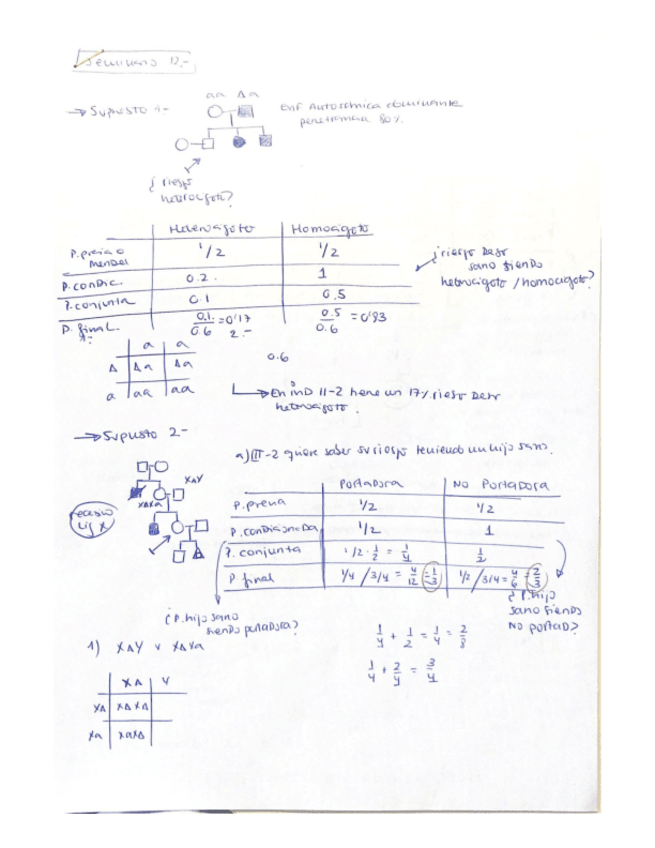 Seminario 12.-
aa Aa
→ Supuesto 1-
Enf Autosómica dominante
penetrancia 80%.
¿riesgo
heterocigoto?
Heterocigoto Homocigoto
P. previa o
Mendel 1/2 1/2
P. condic. 0.2. 1
P. conjunta 0.1 0.5
P. final 0.1/0.6 = 0'17 0.5/0.6 = 0'83
2.-
¿riesgo
sano siendo
heterocigoto / homocigoto?
1-
a a
A Aa Aa
a aa aa
0.6
→ En inD II-2 tiene un 17% riesgo
heterocigoto.
→ Supuesto 2-
a) III-2 quiere saber su riesgo teniendo un hijo sano.
XAY
XAXa
recesivo
lig X
Portadora No Portadora
P. previa 1/2 1/2
P. condicionada 1/2 1
P. conjunta 1/2 · 1/2 = 1/4 1/2
P. final 1/4 / 3/4 = 4/12 = 1/3 1/2 / 3/4 = 4/6 = 2/3
¿P. hijo sano
siendo portadora?
¿P. hijo
sano siendo
No portad?
1) XAY v XAXa
1/4 + 1/2 = 1/4 = 2/3
1/4 + 2/4 = 3/4
XA Y
XA XAXA
Xa XaXA